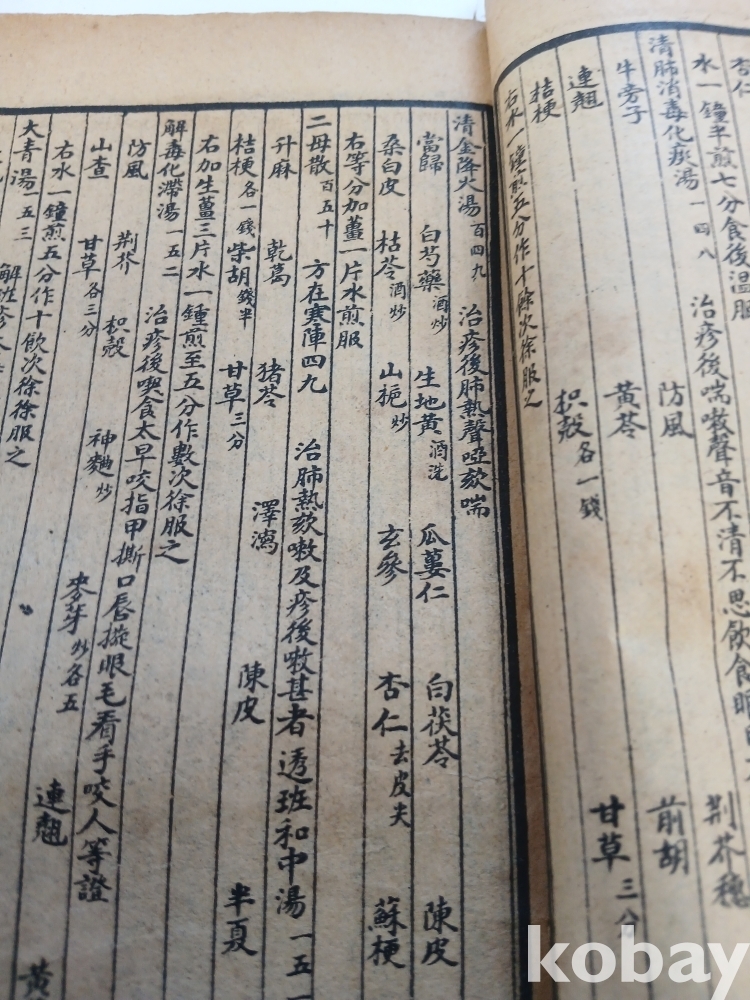 杏仁
水一鐘半煎七分食後溫服
清肺消毒化痰湯 一四八 治疹後喘嗽聲音不清不思飲食眼
牛旁子 防風 荊芥穗
連翹 黃芩 前胡
桔梗 枳殼各一錢 甘草三分
右水一鐘煎五分作十餘次徐服之
清金降火湯 百四九 治疹後肺熱聲啞咳喘
當歸 白芍藥酒炒 生地黃酒洗 瓜蔞仁 白茯苓 陳皮
桑白皮 枯芩酒炒 山梔炒 玄參 杏仁去皮尖 蘇梗
右等分加薑一片水煎服
二母散 百五十 方在寒陣四九 治肺熱咳嗽及疹後嗽甚者 透班和中湯 一五一
升麻 乾葛 猪苓 澤瀉 陳皮 半夏
桔梗各一錢 柴胡錢半 甘草三分
右加生薑三片水一鍾煎至五分作數次徐服之
解毒化滯湯 一五二 治疹後喫食太早咬指甲撕口唇擬眼毛看手咬人等證
防風 荊芥 枳殼 神麯炒 麥芽炒各五 連翹 黃
山查 甘草各三分
右水一鐘煎五分作十飲次徐徐服之
大青湯 一五三 解班疹
kobay